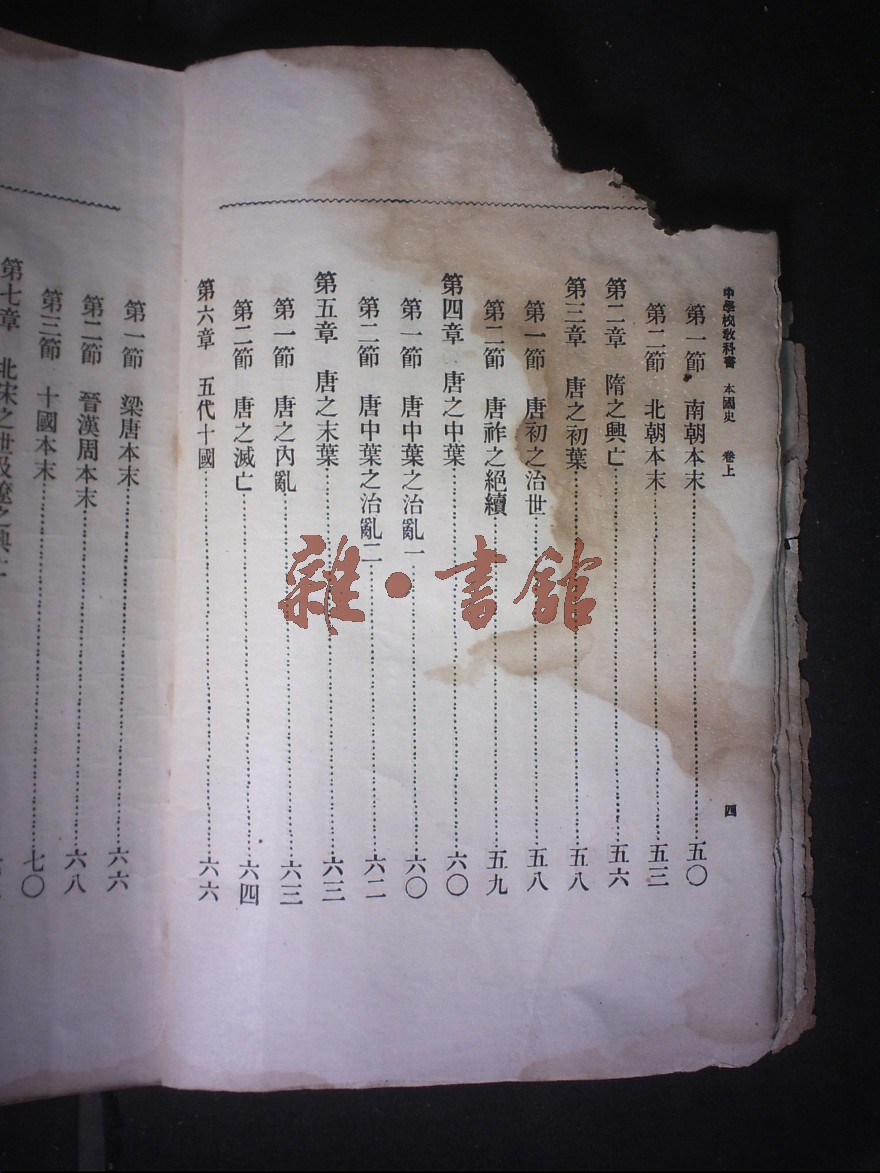 中學校教科書 本國史 卷上 四
第一節 南朝本末 五〇
第二節 北朝本末 五三
第二章 隋之興亡 五六
第三章 唐之初葉 五八
第一節 唐初之治世 五八
第二節 唐祚之絕續 五九
第四章 唐之中葉 六〇
第一節 唐中葉之治亂一 六〇
第二節 唐中葉之治亂二 六二
第五章 唐之末葉 六三
第一節 唐之內亂 六三
第二節 唐之滅亡 六四
第六章 五代十國 六六
第一節 梁唐本末 六六
第二節 晉漢周本末 六八
第三節 十國本末 七〇
第七章 北宋之世及遼之興
雜·書館